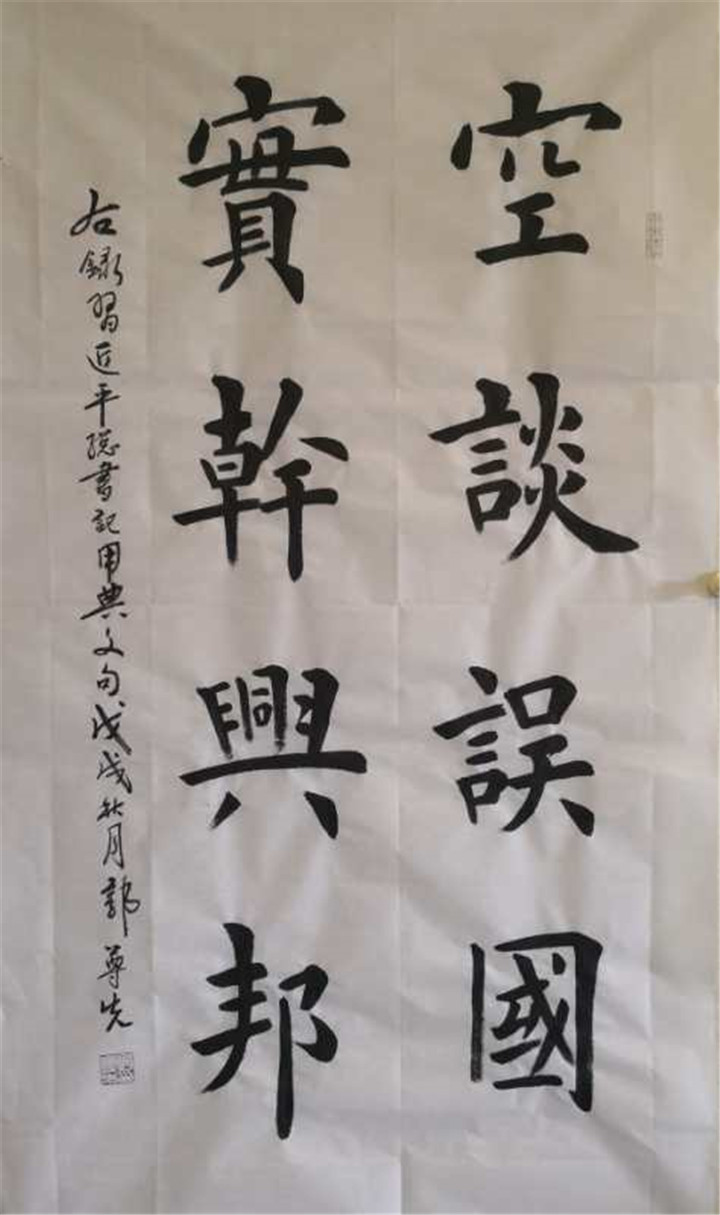 空談誤國
實幹興邦
右錄習近平總書記用典文句戊戌秋月郭尊先